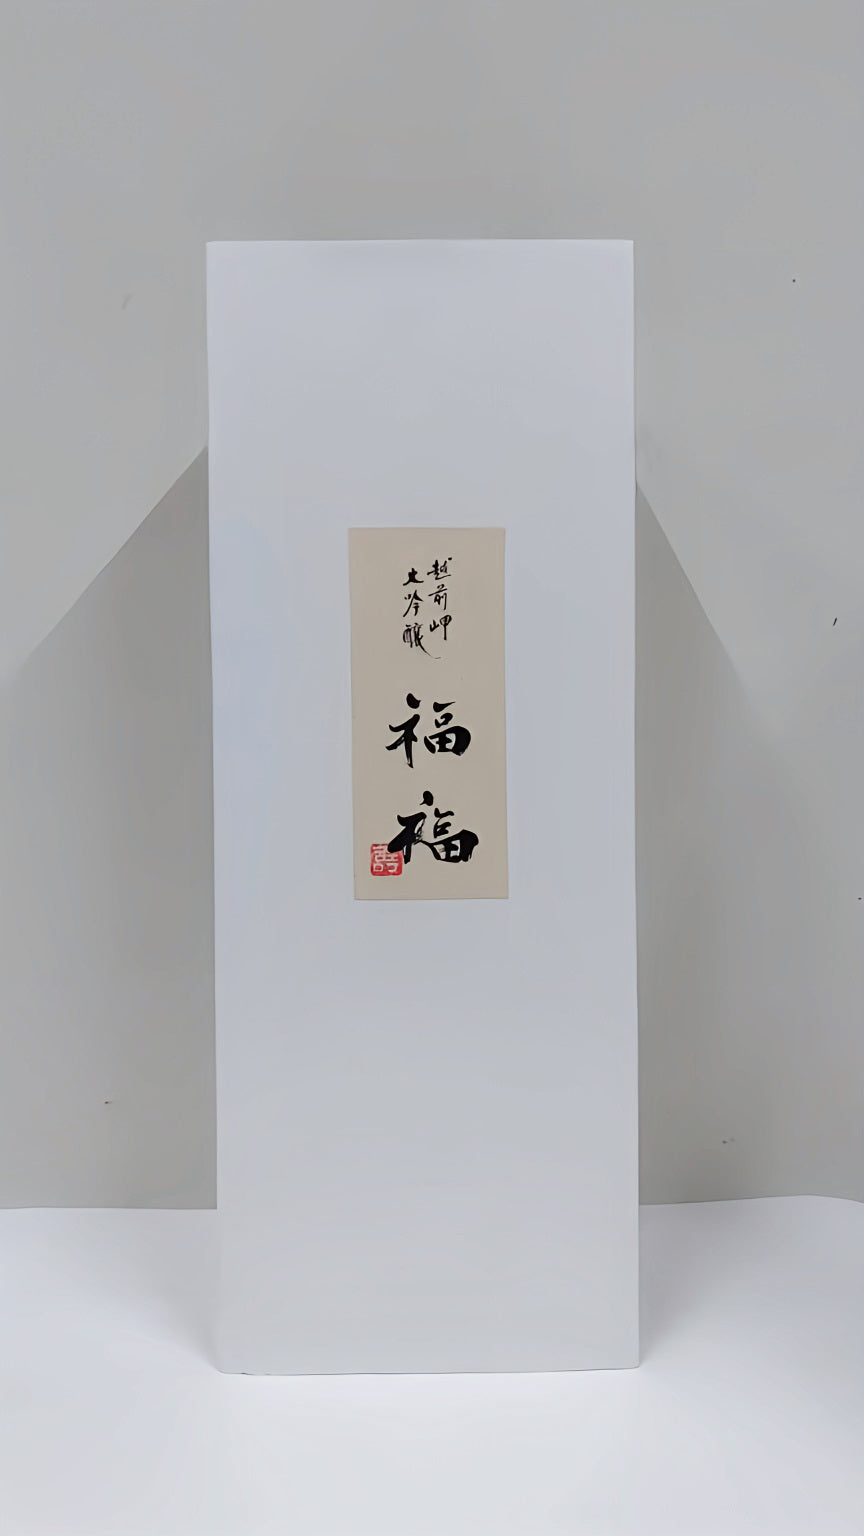 越前岬
大吟醸
福
福
寿